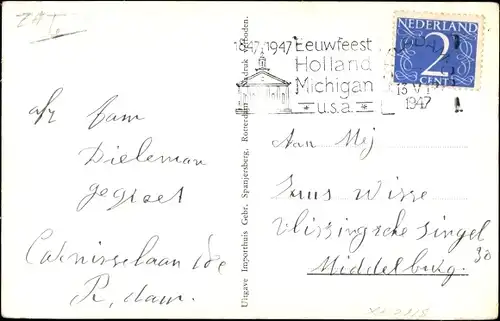 ZAT.
1847 1947 Eeuwfeest
Holland
Michigan
* u.s.a. *
NEDERLAND
2
CENT
13 VI
1947
afz fam
Dieleman
gegroet
Carnisselaan
R, dam.
Uitgave Importhuis Gebr. Spanjersberg, Rotterdam Nadruk verboden.
Aan Mej
Wisse
Vlissingsche singel
30
Middelburg.